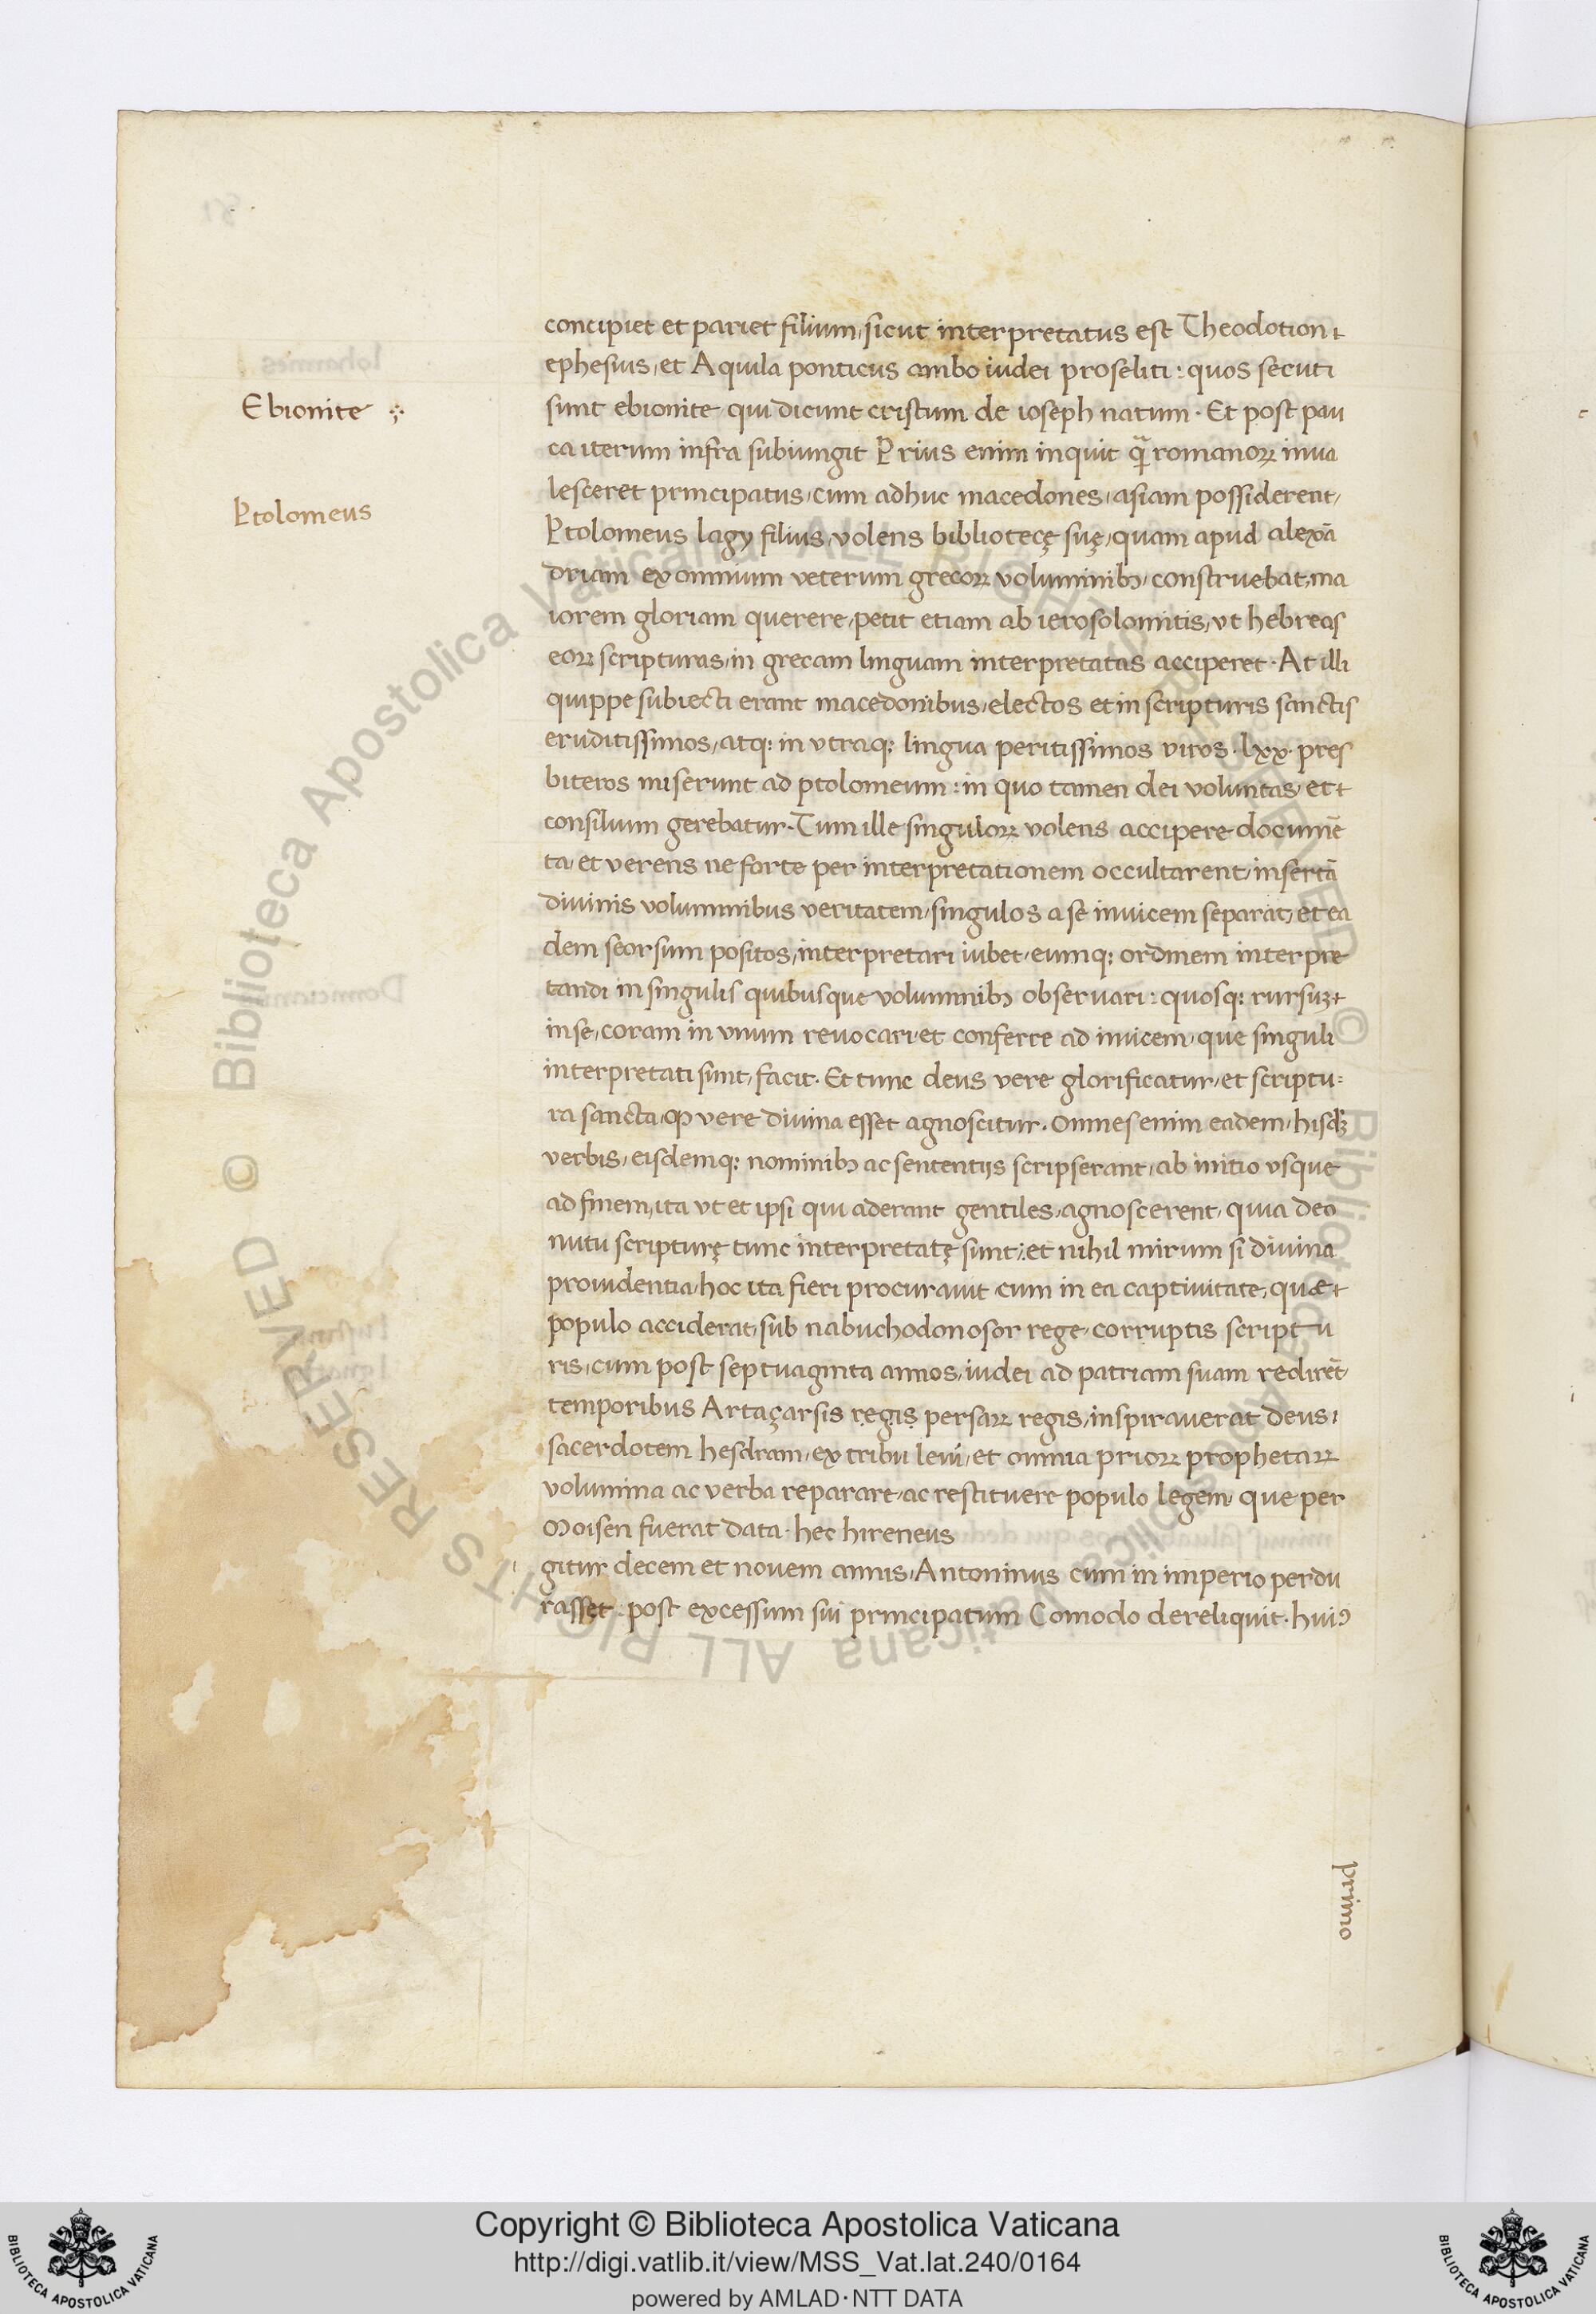 concipiet et pariet filium, sicut interpretatus est Theodotion
ephesius, et Aquila ponticus ambo iudei proseliti: quos secuti
Ebionite
sunt ebionite qui dicunt cristum de ioseph natum. Et post pau
ca iterum infra subiungit Prius enim inquit qᷓ romanoꝝ inua
lesceret principatus, cum adhuc macedones, asiam possiderent,
Ptolomeus
Ptolomeus lagy filius, volens bibliotecę suę, quam apud alexā
driam ex omnium veterum grecoꝝ voluminibꝫ, construebat, ma
iorem gloriam querere, petit etiam ab ierosolomitis, vt hebreas
eoꝝ scripturas, in grecam linguam interpretatas acciperet. At illi
quippe subiecti erant macedonibus, electos et in scripturis sanctis
eruditissimos, atqꝫ in vtraqꝫ lingua peritissimos viros. lxx. pres
biteros miserunt ad ptolomeum: in quo tamen dei voluntas, et
consilium gerebatur. Tum ille singuloꝝ volens accipere documē
ta, et verens ne forte per interpretationem occultarent, insertā
diuinis voluminibus veritatem, singulos a se inuicem separat, et ea
dem seorsum positos, interpretari iubet, eumqꝫ ordinem interpre
tandi in singulis quibusque voluminibꝫ obseruari: quosqꝫ rursuꝫ
in se, coram in vnum reuocari et conferre ad inuicem, que singuli
interpretati sunt, facit. Et tunc deus vere glorificatur, et scriptu:
ra sancta, ꝙ vere diuina esset agnoscitur. Omnes enim eadem, hisdꝫ
verbis, eisdemqꝫ nominibꝫ ac sententijs scripserant, ab initio vsque
ad finem, ita vt et ipsi qui aderant gentiles, agnoscerent, quia deo
nutu scripturę tunc interpretatę sunt: et nihil mirum si diuina
prouidentia, hoc ita fieri procurauit cum in ea captiuitate, quae
populo acciderat, sub nabuchodonosor rege, corruptis scriptu
ris, cum post septuaginta annos, iudei ad patriam suam redirēt,
temporibus Artaçarsis regis persaꝝ regis, inspirauerat deus,
sacerdotem hesdram, ex tribu leui, et omnia prioꝝ prophetaꝝ
volumina ac verba reparare, ac restituere populo legem, que per
Moisen fuerat data. hec hireneus
gitur decem et nouem annis, Antoninus cum in imperio perdu
rasset: post excessum sui principatum Comodo dereliquit. huiꝰ
primo
© Biblioteca Apostolica Vaticana ALL RIGHTS RESERVED © Biblioteca Apostolica Vaticana ALL RIGHTS RESERVED
Copyright © Biblioteca Apostolica Vaticana
http://digi.vatlib.it/view/MSS_Vat.lat.240/0164
powered by AMLAD·NTT DATA
BIBLIOTECA APOSTOLICA VATICANA
BIBLIOTECA APOSTOLICA VATICANA